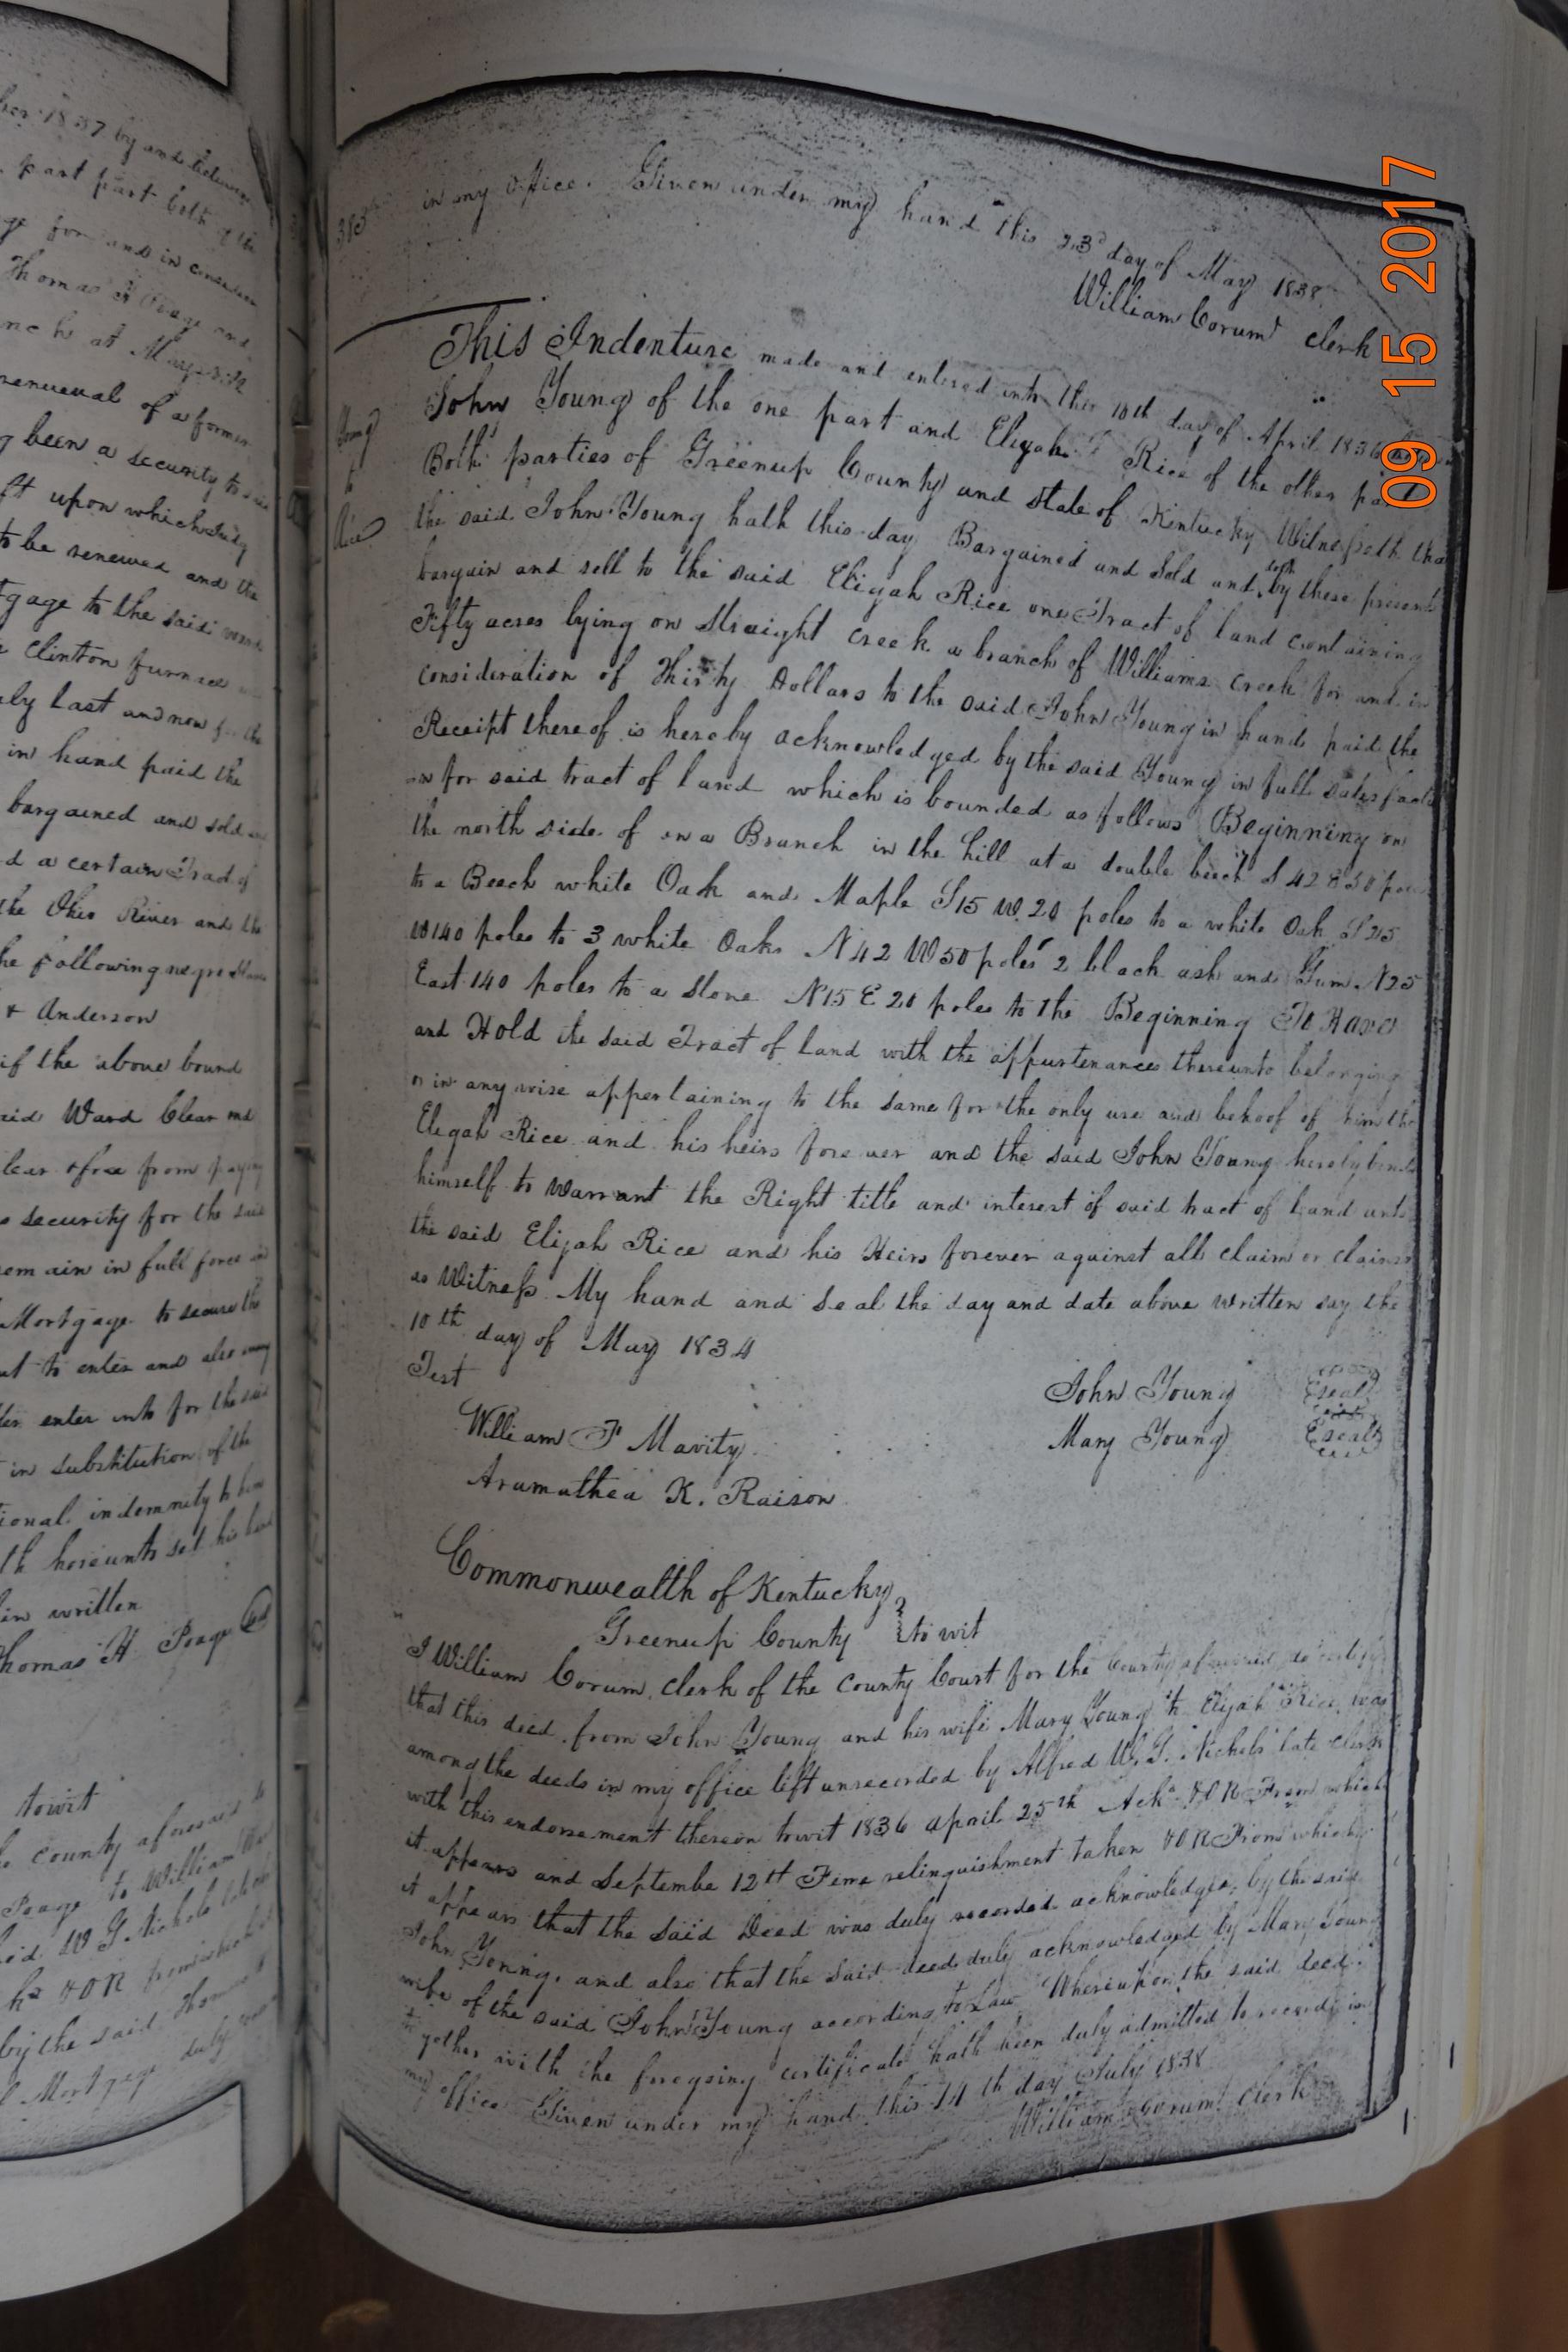 ber 1837 by and between
part part both of the
ge for and in consider
Thomas H Poage and
nch at Maysville
renuewal of a former
g been a security to
ft upon which
to be renewed and the
tgage to the said
Clinton furnace
ly last and now for the
in hand paid the
bargained and sold and
d a certain Tract of
the Ohio River and the
he following negro Slaves
& Anderson
if the above bound
aid Ward Clear and
lear & free from paying
security for the said
remain in full force
Mortgage to secure the
ut to enter and also
enter into for the said
in substitution of the
tional indemnity to him
th hereunto set his hand
in written
Thomas H Poage
towit
County aforesaid
Poage to William
W G. Nichols late
VOR from which
by the said Thomas
Mortgage duly
in my office. Given under my hand this 23d day of May 1838
William Corum clerk
Young
to
Rice
This Indenture made and entered into this 10th day of April 1836
John Young of the one part and Elijah Rice of the other part
Both parties of Greenup County and State of Kentucky Witnesseth that
the said John Young hath this day Bargained and Sold and doth by these present
bargain and sell to the said Elijah Rice one Tract of land containing
Fifty acres lying on Straight Creek a branch of Williams Creek for and in
consideration of Thirty Dollars to the said John Young in hand paid the
Receipt thereof is hereby acknowledged by the said Young in full satisfacti
on for said tract of land which is bounded as follows Beginning on
the north side of on a Branch in the hill at a double beech S 42 E 50 poles
to a Beech white Oak and Maple S 15 W. 20 poles to a white Oak S 25
W 140 poles to 3 white Oaks N 42 W 50 poles 2 black ash and Gum N 25
East 140 poles to a Stone N 15 E 20 poles to the Beginning To Have
and Hold the said Tract of land with the appurtenances thereunto belonging
or in any wise appertaining to the same for the only use and behoof of him the
Elijah Rice and his heirs forever and the said John Young hereby binds
himself to warrant the Right title and interest of said tract of land unto
the said Elijah Rice and his Heirs forever against all claim or claims
as Witness My hand and Seal the day and date above written say the
10th day of May 1834
Test
John Young Seal
William F Mavity
Mary Young Seal
Aramathea K. Raison
Commonwealth of Kentucky
Greenup County to wit
I William Corum, Clerk of the County Court for the County aforesaid do certify
that this deed from John Young and his wife Mary Young to Elijah Rice, was
among the deeds in my office left unrecorded by Alfred W. G. Nichols late clerk
with this endorsement thereon towit 1836 April 25th Ackd VOR From which
it appears and Septembe 12th Feme relinquishment taken VOR From which
it appears that the said Deed was duly recorded acknowledged by the said
John Young, and also that the said deed duly acknowledged by Mary Young
wife of the said John Young according to Law Whereupon the said deed
together with the foregoing certificate hath been duly admitted to record in
my office Given under my hand this 14th day July 1838
William Corum Clerk
09 15 2017